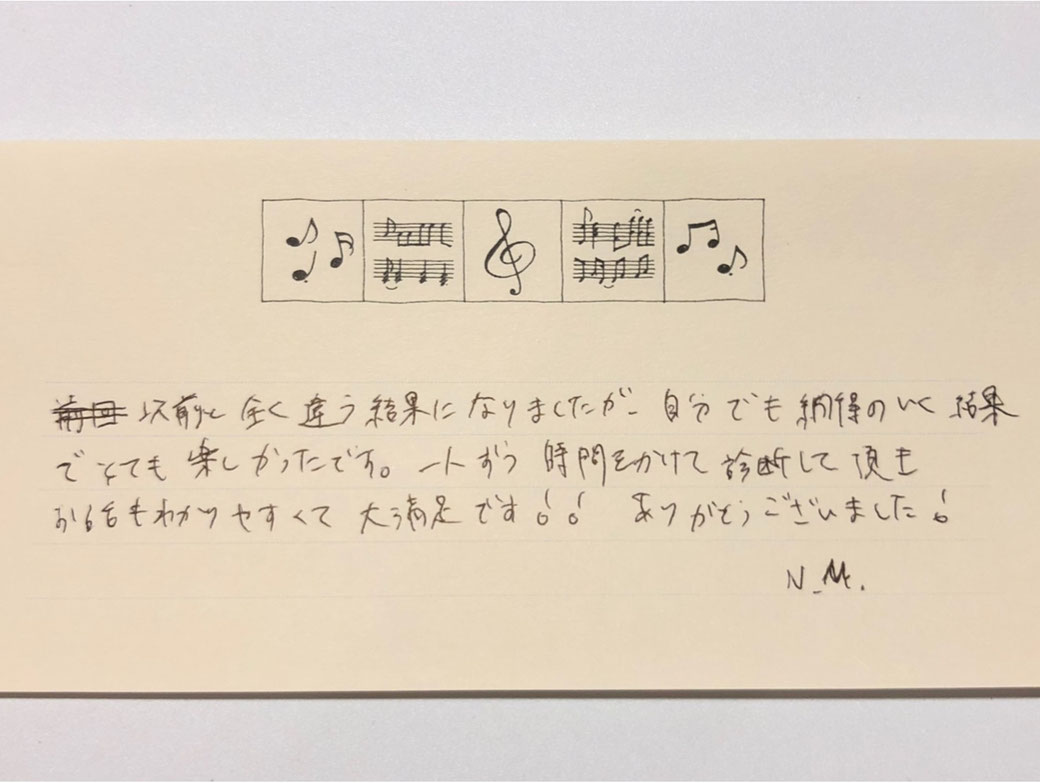 以前と全く違う結果になりましたが、自分でも納得のいく結果
でとても楽しかったです。一人ずつ時間をかけて診断して頂き
お話もわかりやすくて大満足です!! ありがとうございました!
N.M.